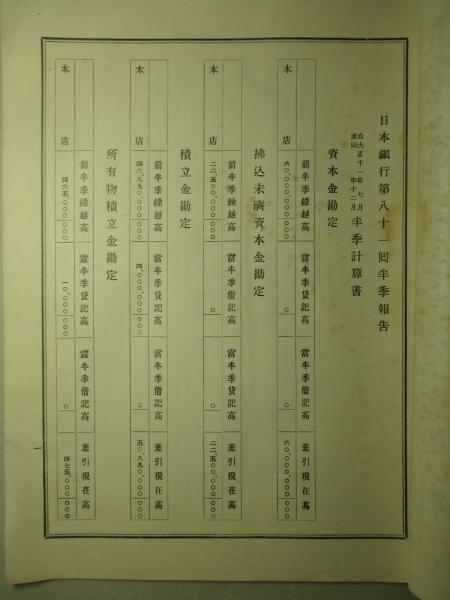 日本銀行第八十一回半季報告
自大正十一年七月
至同年十二月
半季計算書
資本金勘定
前半季繰越高 當半季貸記高 當半季借記高 差引現在高
本店 六〇,〇〇〇,〇〇〇 〇〇〇 〇 〇 六〇,〇〇〇,〇〇〇 〇〇〇
拂込未濟資本金勘定
前半季繰越高 當半季借記高 當半季貸記高 差引現在高
本店 二二,五〇〇,〇〇〇 〇〇〇 〇 〇 二二,五〇〇,〇〇〇 〇〇〇
積立金勘定
前半季繰越高 當半季貸記高 當半季借記高 差引現在高
本店 四六,八九〇,〇〇〇 〇〇〇 四,〇〇〇,〇〇〇 〇〇〇 〇 五〇,八九〇,〇〇〇 〇〇〇
所有物積立金勘定
前半季繰越高 當半季貸記高 當半季借記高 差引現在高
本店 四六五,〇〇〇 〇〇〇 一〇,〇〇〇 〇〇〇 〇 四七五,〇〇〇 〇〇〇
一